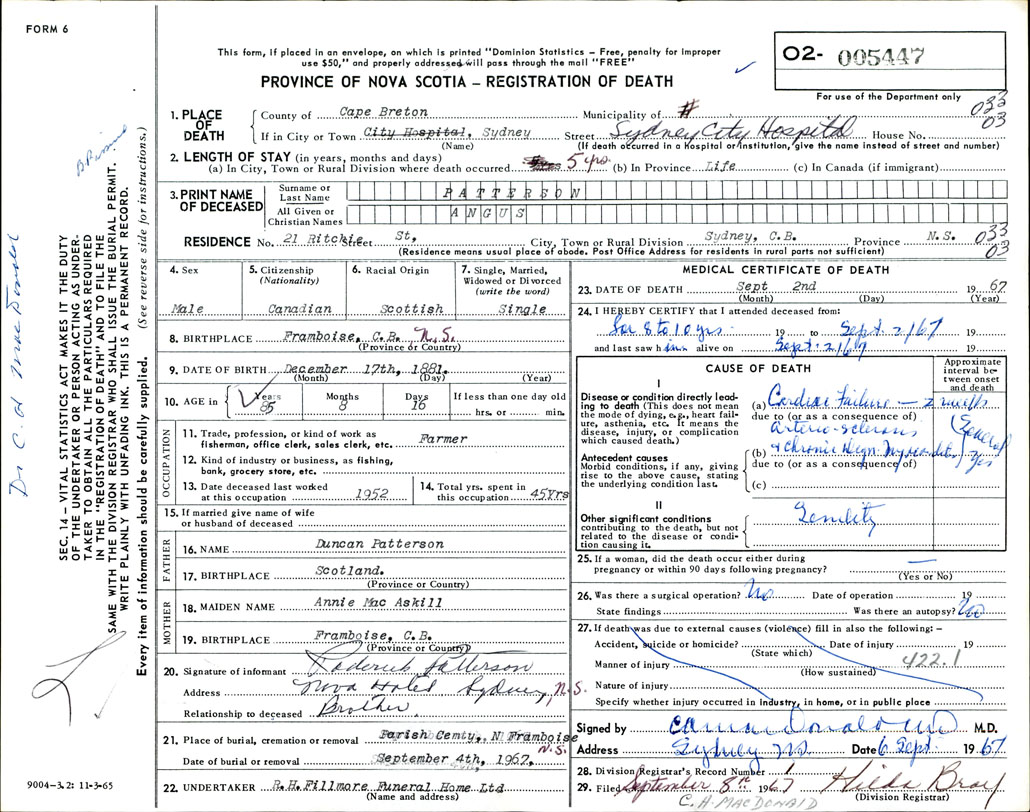 FORM 6
This form, if placed in an envelope, on which is printed "Dominion Statistics – Free, penalty for improper
use $50," and properly addressed will pass through the mail "FREE"
PROVINCE OF NOVA SCOTIA – REGISTRATION OF DEATH
O2- 005447
For use of the Department only
033
03
1. PLACE OF DEATH
County of Cape Breton Municipality of #
If in City or Town City Hospital, Sydney Street Sydney City Hospital House No.
(Name) (If death occurred in a Hospital or institution, give the name instead of street and number)
2. LENGTH OF STAY (in years, months and days)
(a) In City, Town or Rural Division where death occurred 5 yrs. (b) In Province Life (c) In Canada (if immigrant)
3. PRINT NAME OF DECEASED
Surname or Last Name PATTERSON
All Given or Christian Names ANGUS
RESIDENCE No. 21 Ritchie Street St, City, Town or Rural Division Sydney, C.B. Province N.S. 033
03
(Residence means usual place of abode. Post Office Address for residents in rural parts not sufficient)
4. Sex Male
5. Citizenship (Nationality) Canadian
6. Racial Origin Scottish
7. Single, Married, Widowed or Divorced (write the word) Single
8. BIRTHPLACE Framboise, C.B. N.S.
(Province or Country)
9. DATE OF BIRTH December 17th, 1881.
(Month) (Day) (Year)
10. AGE in Years 85 Months 8 Days 16 If less than one day old hrs. or min.
OCCUPATION
11. Trade, profession, or kind of work as fisherman, office clerk, sales clerk, etc. Farmer
12. Kind of industry or business, as fishing, bank, grocery store, etc.
13. Date deceased last worked at this occupation 1952
14. Total yrs. spent in this occupation 45Yrs
15. If married give name of wife or husband of deceased
FATHER
16. NAME Duncan Patterson
17. BIRTHPLACE Scotland.
(Province or Country)
MOTHER
18. MAIDEN NAME Annie Mac Askill
19. BIRTHPLACE Framboise, C.B.
(Province or Country)
20. Signature of informant Roderick Patterson
Address Nova Hotel Sydney, N.S.
Relationship to deceased Brother
21. Place of burial, cremation or removal Parish Cemty,. N Framboise
N.S.
Date of burial or removal September 4th, 1967,
22. UNDERTAKER R.H.Fillmore Funeral Home Ltd
(Name and address)
MEDICAL CERTIFICATE OF DEATH
23. DATE OF DEATH Sept 2nd 19 67
(Month) (Day) (Year)
24. I HEREBY CERTIFY that I attended deceased from:
for 8 to 10 yrs. 19 to Sept. 2/67 19
and last saw him alive on Sept. 2/67 19
CAUSE OF DEATH
Approximate interval between onset and death
I
Disease or condition directly leading to death (This does not mean the mode of dying, e.g., heart failure, asthenia, etc. It means the disease, injury, or complication which caused death.)
(a) Cardiac Failure — 2 weeks
due to (or as a consequence of)
Arterio-sclerosis
Antecedent causes
Morbid conditions, if any, giving rise to the above cause, stating the underlying condition last.
(b) & Chronic Degn. Myocarditis
due to (or as a consequence of)
(Several yrs
(c)
II
Other significant conditions contributing to the death, but not related to the disease or condition causing it.
Senility
25. If a woman, did the death occur either during pregnancy or within 90 days following pregnancy? —
(Yes or No)
26. Was there a surgical operation? No Date of operation 19
State findings Was there an autopsy? No
27. If death was due to external causes (violence) fill in also the following: –
Accident, suicide or homicide? Date of injury 19
(State which)
422.1
Manner of injury
(How sustained)
Nature of injury
Specify whether injury occurred in industry, in home, or in public place
Signed by C A MacDonald MD M.D.
Address Sydney NS Date 6 Sept. 19 67
28. Division Registrar's Record Number 1
29. Filed September 8th 1967 Hilda Bray
(Division Registrar)
C. A. MACDONALD
Dr C. A. MacDonald
SEC. 14 – VITAL STATISTICS ACT MAKES IT THE DUTY
OF THE UNDERTAKER OR PERSON ACTING AS UNDER-
TAKER TO OBTAIN ALL THE PARTICULARS REQUIRED
IN THE "REGISTRATION OF DEATH" AND TO FILE THE
SAME WITH THE DIVISION REGISTRAR WHO SHALL ISSUE THE BURIAL PERMIT.
WRITE PLAINLY WITH UNFADING INK. THIS IS A PERMANENT RECORD.
Every item of information should be carefully supplied. (See reverse side for instructions.)
9004-3.2: 11-3-65